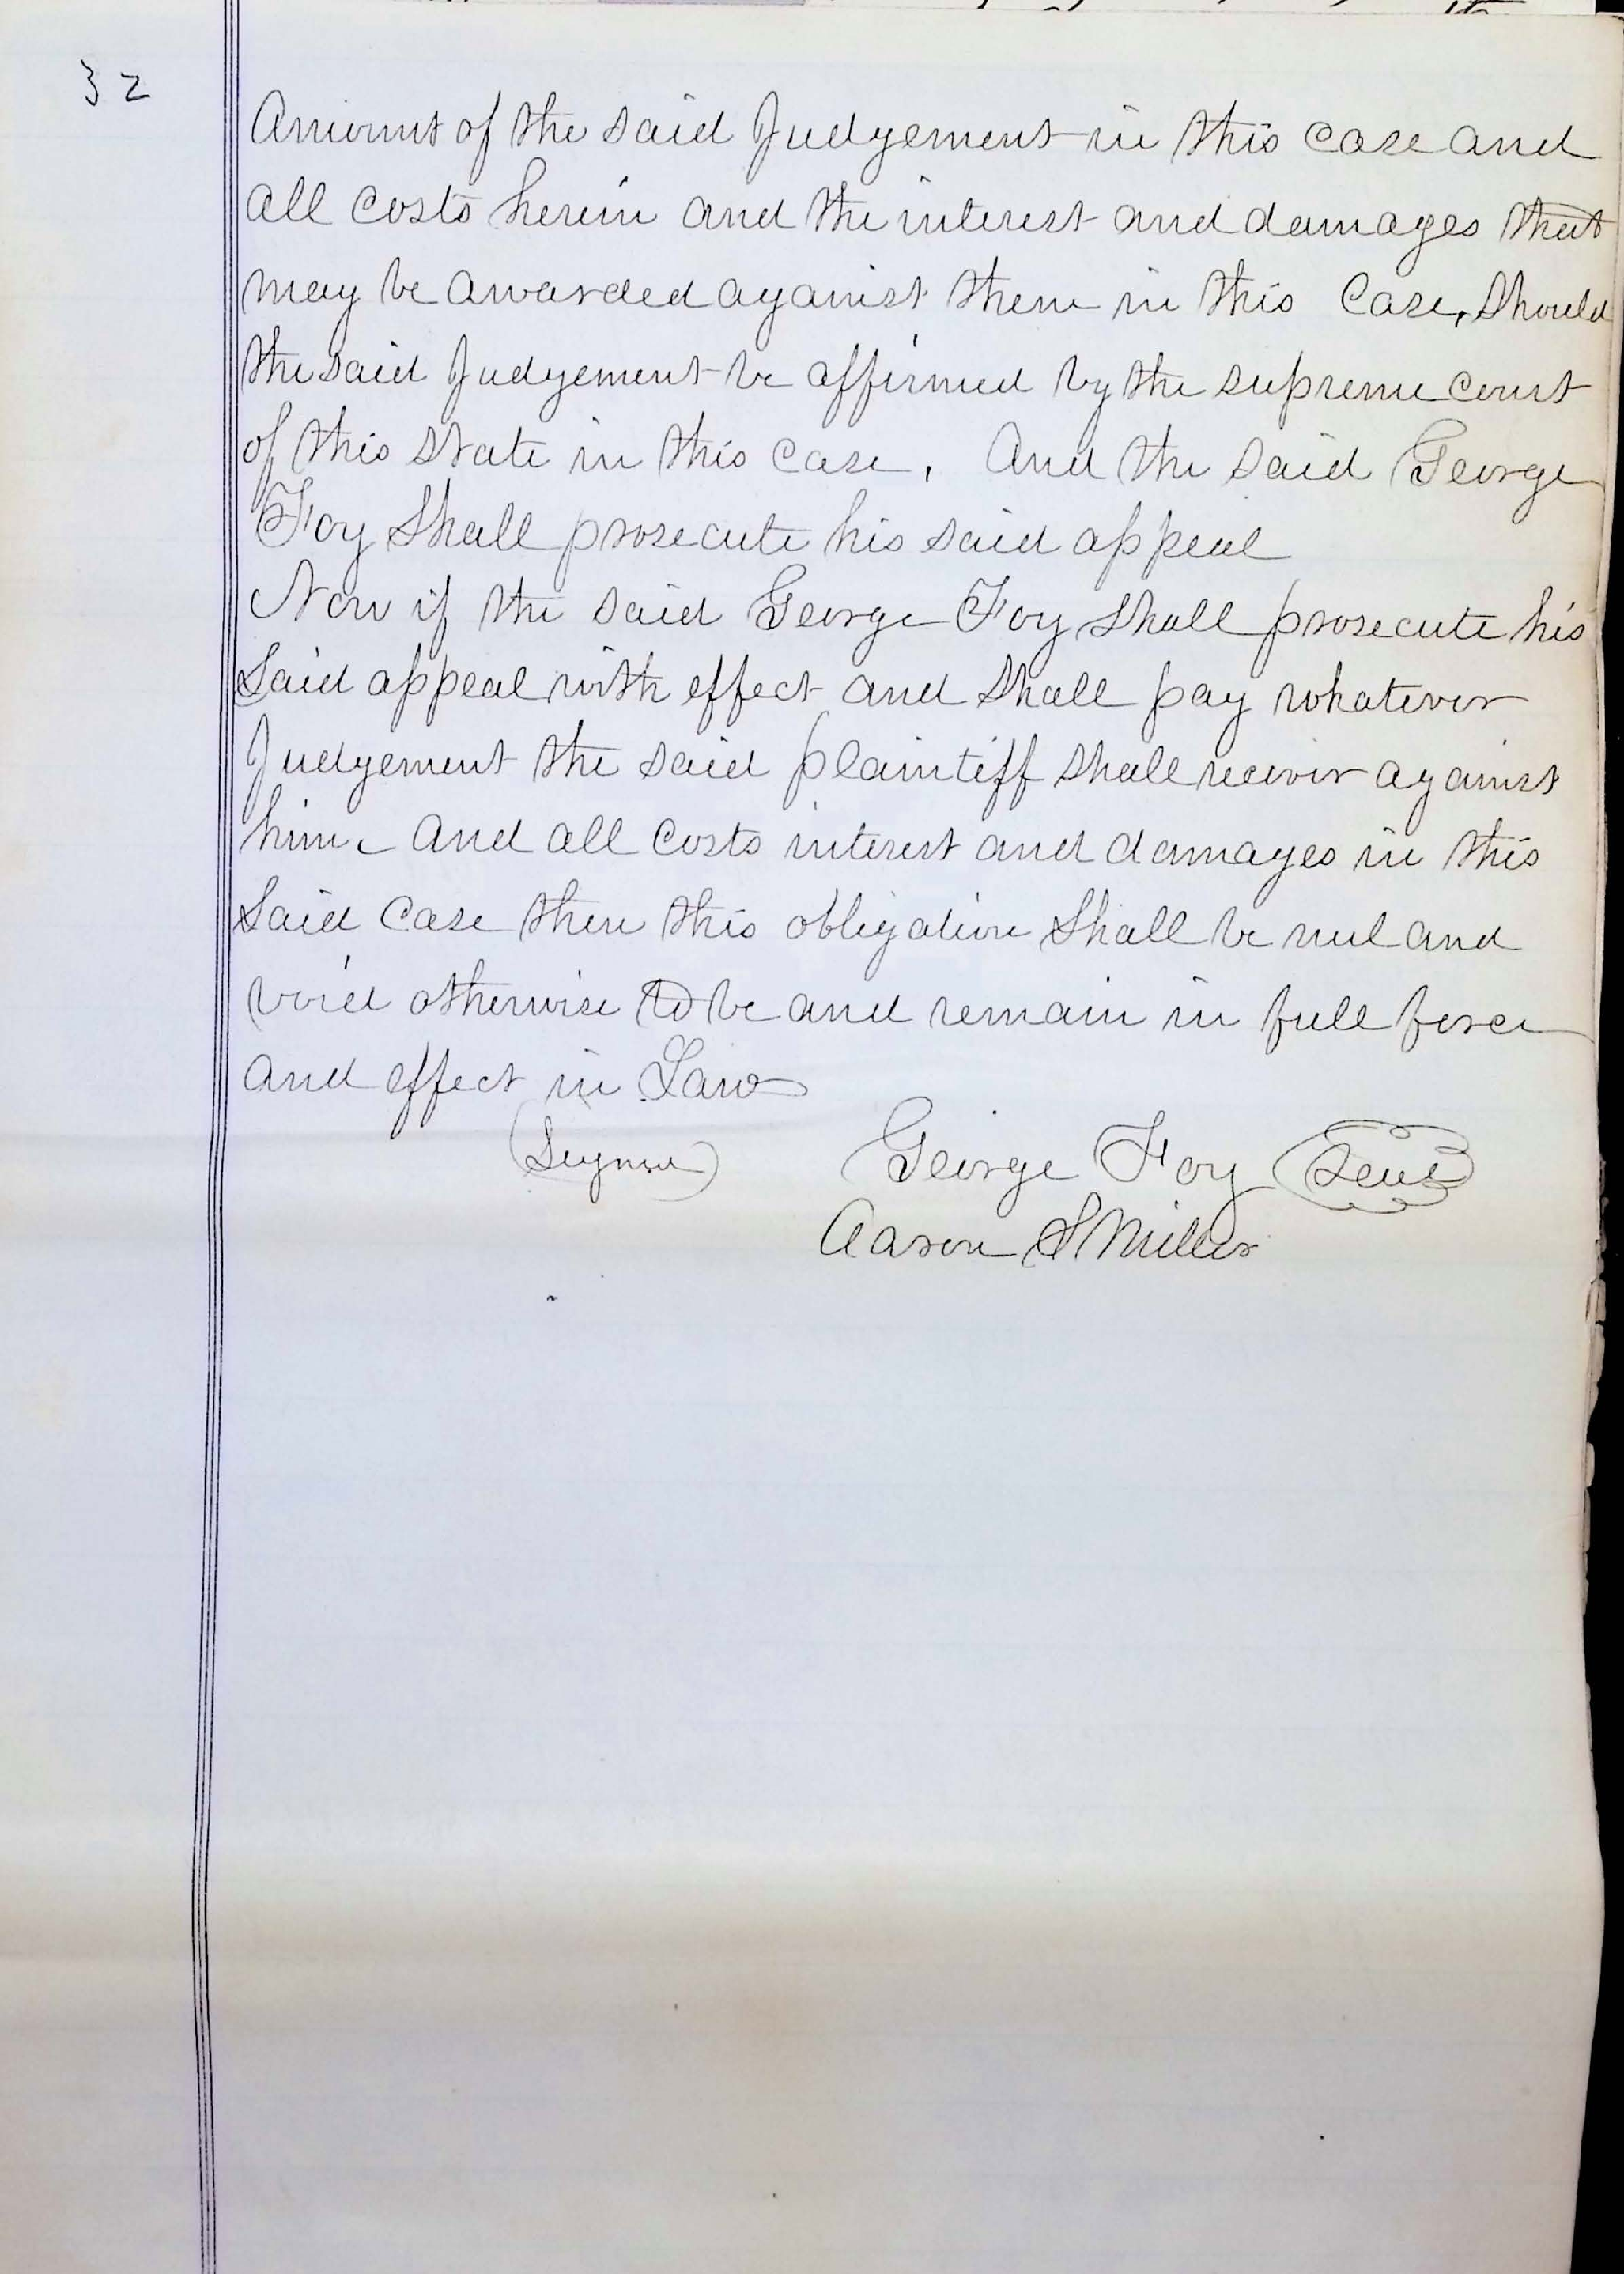 32
Amount of the said Judgement in this case and
all costs herein and the interest and damages that
may be awarded against them in this Case, Should
the said Judgement be affirmed by the supreme court
of this state in this case. And the said George
Foy Shall prosecute his said appeal
Now if the said George Foy Shall prosecute his
Said appeal with effect and Shall pay whatever
Judgement the said plaintiff shall recover against
him. And all costs interest and damages in this
Said case then this obligation Shall be nul and
void otherwise to be and remain in full force
and effect in Law
George Foy Seal
Aaron S Miller